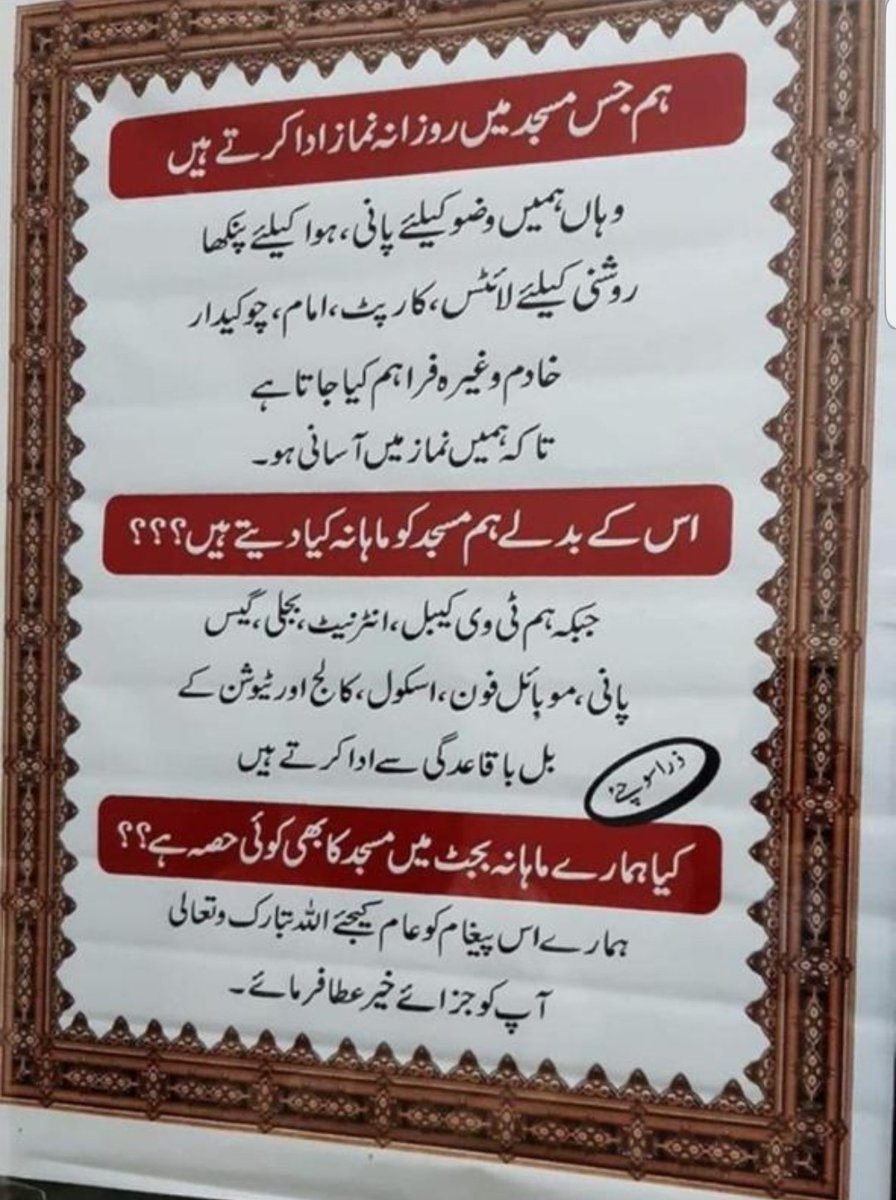 ہم جس مسجد میں روزانہ نماز ادا کرتے ہیں
وہاں ہمیں وضو کیلئے پانی، ہوا کیلئے پنکھا
روشنی کیلئے لائٹس، کارپٹ، امام، چوکیدار
خادم وغیرہ فراہم کیا جاتا ہے
تا کہ ہمیں نماز میں آسانی ہو۔
اس کے بدلے ہم مسجد کو ماہانہ کیا دیتے ہیں؟؟؟
جبکہ ہم ٹی وی کیبل، انٹرنیٹ، بجلی، گیس
پانی، موبائل فون، اسکول، کالج اور ٹیوشن کے
بل باقاعدگی سے ادا کرتے ہیں
ذرا سوچیے؟
کیا ہمارے ماہانہ بجٹ میں مسجد کا بھی کوئی حصہ ہے؟؟
ہمارے اس پیغام کو عام کیجئے اللہ تبارک وتعالی
آپ کو جزائے خیر عطا فرمائے۔